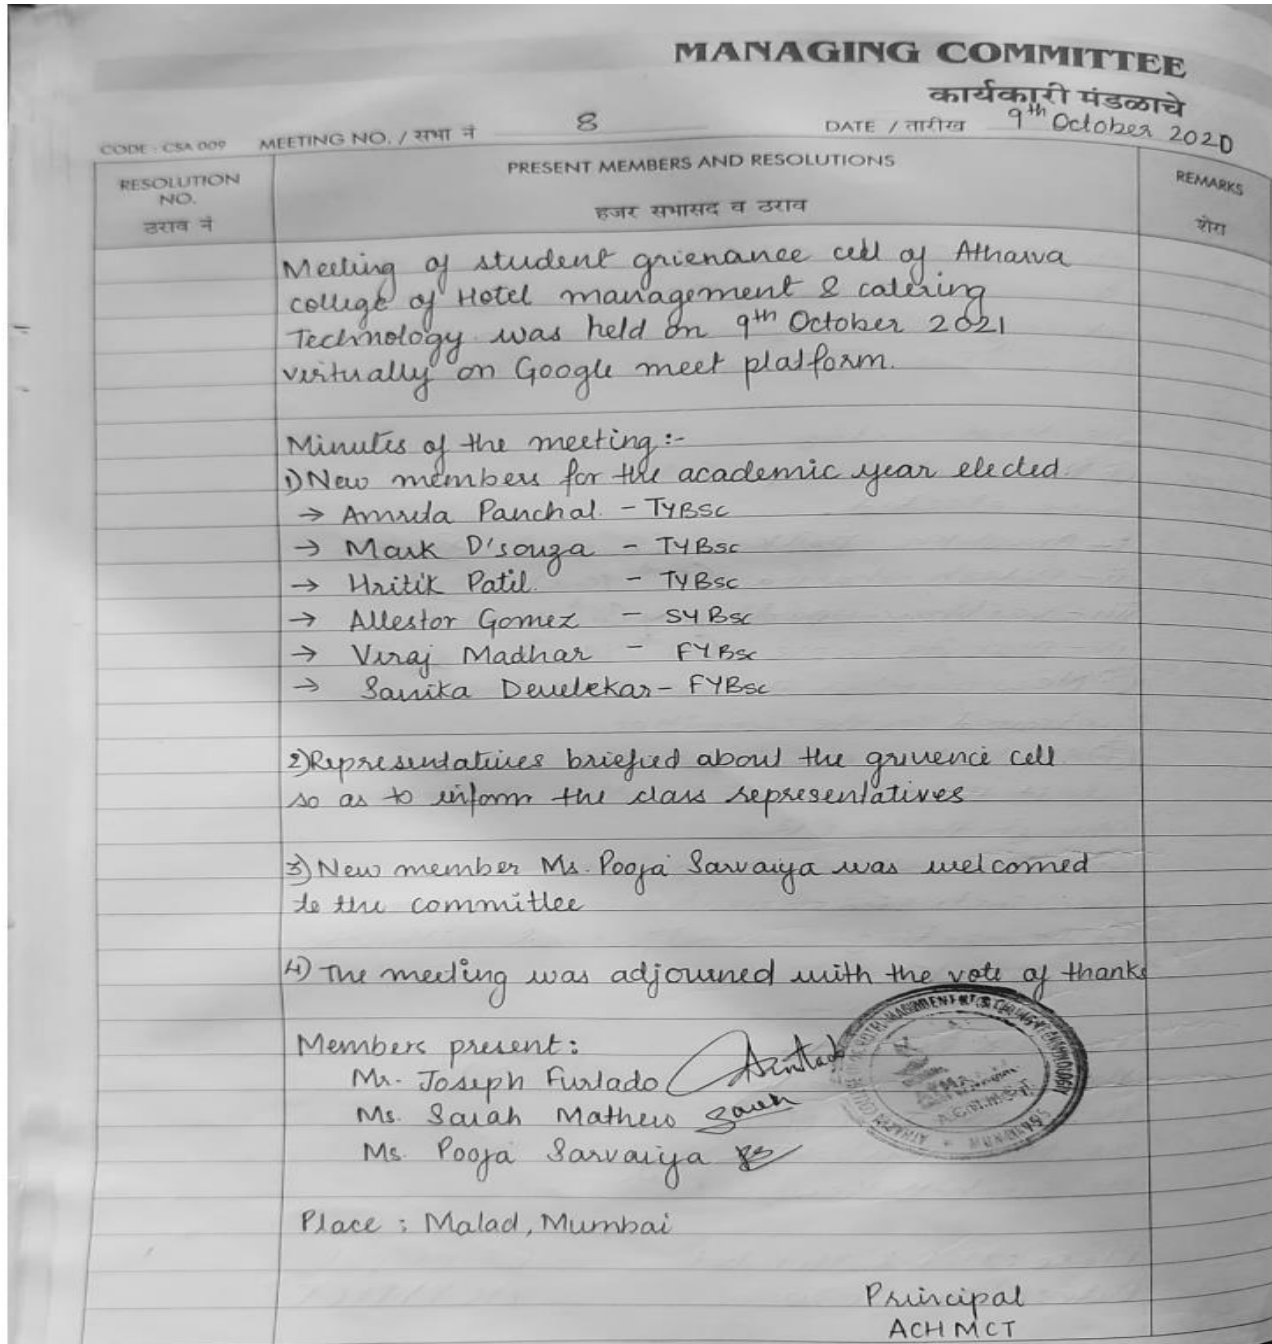 MANAGING COMMITTEE
कार्यकारी मंडळाचे
CODE : CSA 009 MEETING NO. / सभा नं 8 DATE / तारीख 9th October 2020
RESOLUTION NO. PRESENT MEMBERS AND RESOLUTIONS REMARKS
ठराव नं हजर सभासद व ठराव शेरा
Meeting of student grienance cell of Atharva
college of Hotel management & catering
Technology was held on 9th October 2021
virtually on Google meet platform.
Minutes of the meeting :-
1) New members for the academic year elected
→ Amruta Panchal - TYBSC
→ Mark D'souza - TYBsc
→ Hritik Patil - TYBsc
→ Allestor Gomez - SYBsc
→ Viraj Madhar - FYBsc
→ Sanika Devlekar - FYBsc
2) Representatives briefied about the grivence cell
so as to inform the class representatives
3) New member Ms. Pooja Sarvaiya was welcomed
to the committee
4) The meeting was adjourned with the vote of thanks
Members present :
Mr. Joseph Furtado
Ms. Sarah Mathew
Ms. Pooja Sarvaiya
Place : Malad, Mumbai
Principal
ACHMCT